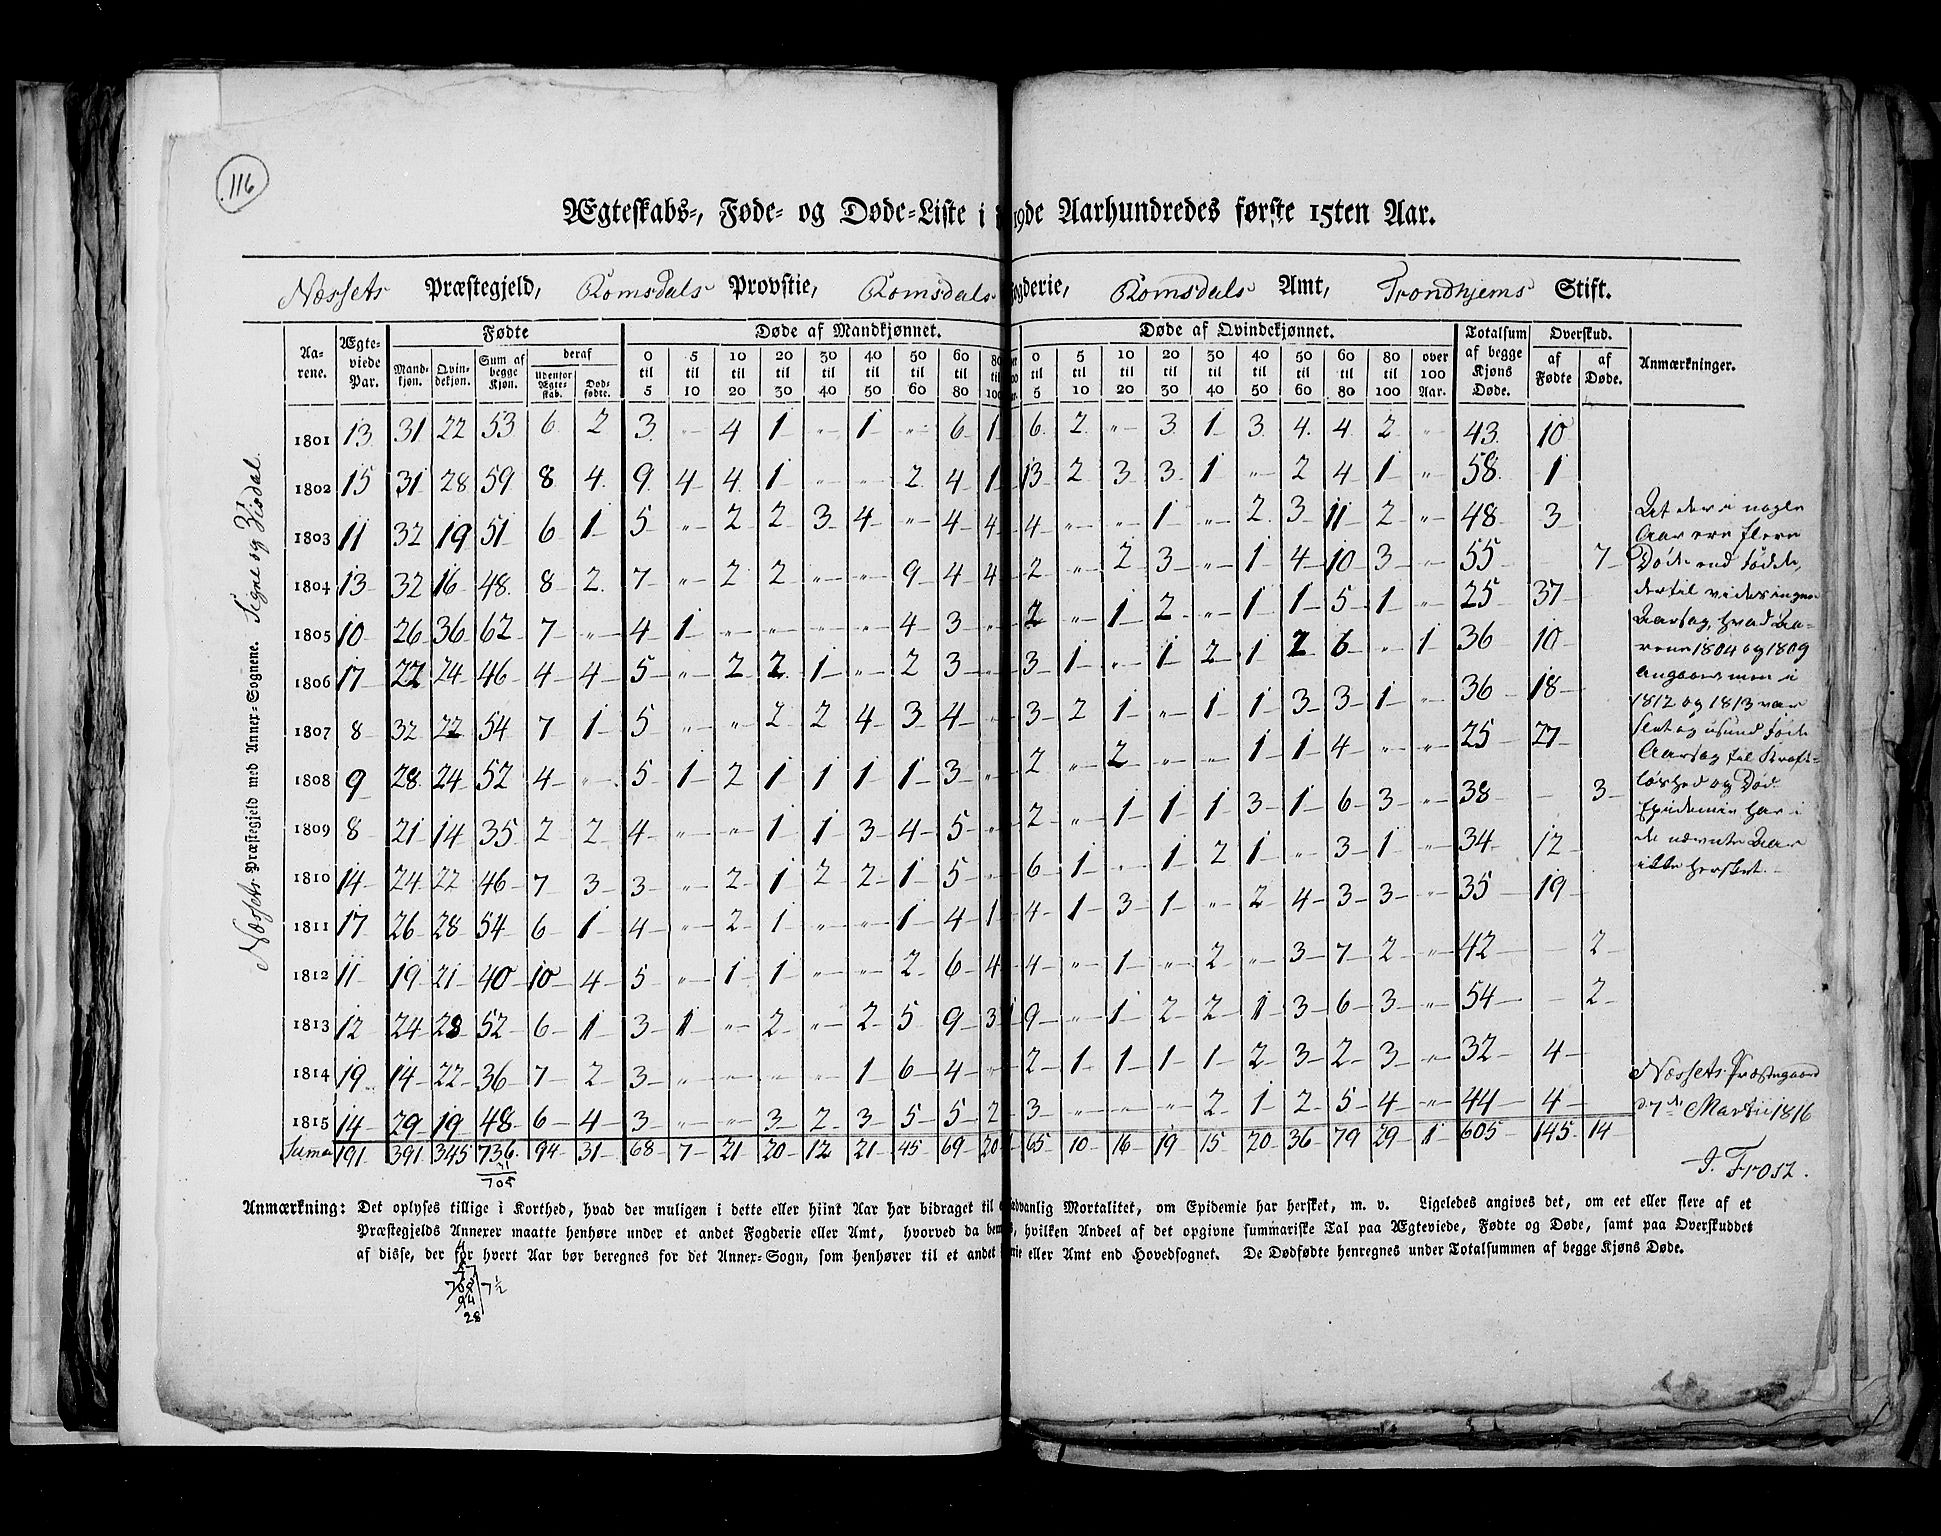 116
Ægteskabs-, Føde- og Døde-Liste i 19de Aarhundredes første 15ten Aar.
Næssets Præstegjeld, Romsdals Provstie, Romsdals Fogderie, Romsdals Amt, Trondhjems Stift.
Næssets Præstegjeld med Annex-Sognene. Signe og Visdal.
Aarene. Ægteviede Par. Fødte Døde af Mandkjønnet. Døde af Qvindekjønnet. Totalsum af begge Kjøns Døde. Overskud. Anmærkninger.
Mandkjøn. Qvindekjøn. Sum af begge Kjøn. deraf udenfor Ægteskab. Dødfødte. 0 til 5 5 til 10 10 til 20 20 til 30 30 til 40 40 til 50 50 til 60 60 til 80 80 til 100 0 til 5 5 til 10 10 til 20 20 til 30 30 til 40 40 til 50 50 til 60 60 til 80 80 til 100 over 100 Aar. af Fødte af Døde.
1801 13 31 22 53 6 2 3 " 4 1 " 1 " 6 1 6 2 " 3 1 3 4 4 2 " 43 10
1802 15 31 28 59 8 4 9 4 4 1 " " 2 4 1 13 2 3 3 1 " 2 4 1 " 58 1
1803 11 32 19 51 6 1 5 " 2 2 3 4 " 4 4 4 " " 1 " 2 3 11 2 " 48 3
1804 13 32 16 48 8 2 7 " 2 2 " " 9 4 4 2 " 2 3 " 1 4 10 3 " 55 7
1805 10 26 36 62 7 " 4 1 " " " " 4 3 " 2 " 1 2 " 1 1 5 1 " 25 37
1806 17 22 24 46 4 4 5 " 2 2 1 " 2 3 " 3 1 " 1 2 1 2 6 " 1 36 10
1807 8 32 22 54 7 1 5 " " 2 2 4 3 4 " 3 2 1 " 1 1 3 3 1 " 36 18
1808 9 28 24 52 4 " 5 1 2 1 1 1 1 3 " 2 " 2 " " 1 1 4 " " 25 27
1809 8 21 14 35 2 2 4 " " 1 1 3 4 5 " 2 " 1 1 1 3 1 6 3 " 38 3
1810 14 24 22 46 7 3 3 " 2 1 2 2 1 5 " 6 1 " 1 2 1 " 3 1 " 34 12
1811 17 26 28 54 6 1 4 " 2 1 " " 1 4 1 4 1 3 1 " 2 4 3 3 " 35 19
1812 11 19 21 40 10 4 5 " 1 1 " " 2 6 4 4 " 1 " 2 " 3 7 2 " 42 2
1813 12 24 28 52 6 1 3 1 " 2 " 2 5 9 3 1 9 " 1 2 2 1 3 6 3 " 54 2
1814 19 14 22 36 7 2 3 " " " " 1 6 4 " 2 1 1 1 1 2 3 2 3 " 32 4
1815 14 29 19 48 6 4 3 " " 3 2 3 5 5 2 3 " " " 2 1 2 5 4 " 44 4
Suma 191 391 345 736 94 31 68 7 21 20 12 21 45 69 20 1 65 10 16 19 15 20 36 79 29 1 605 145 14
31
705
At der i nogle
Aar ere flere
Døde end fødde,
dertil vides ingen
Aarsag, hvad Aa-
rene 1804 og 1809
angaaer men i
1812 og 1813 var
slet og usund føde
Aarsag til Kraft-
løshed og Død
Epidemie har i
de nævnte Aar
ikke hersket.
Næssets Præstegaard
d 7de Martii 1816
J. Frost.
Anmærkning: Det oplyses tillige i Korthed, hvad der muligen i dette eller hiint Aar har bidraget til sædvanlig Mortalitet, om Epidemie har hersket, m. v. Ligeledes angives det, om eet eller flere af et
Præstegjelds Annexer maatte henhøre under et andet Fogderie eller Amt, hvorved da bem s, hvilken Andeel af det opgivne summariske Tal paa Ægteviede, Fødte og Døde, samt paa Overskuddet
af disse, der for hvert Aar bør beregnes for det Annex-Sogn, som henhører til et andet rie eller Amt end Hovedsognet. De Dødfødte henregnes under Totalsummen af begge Kjøns Døde.
705 7½
94
28